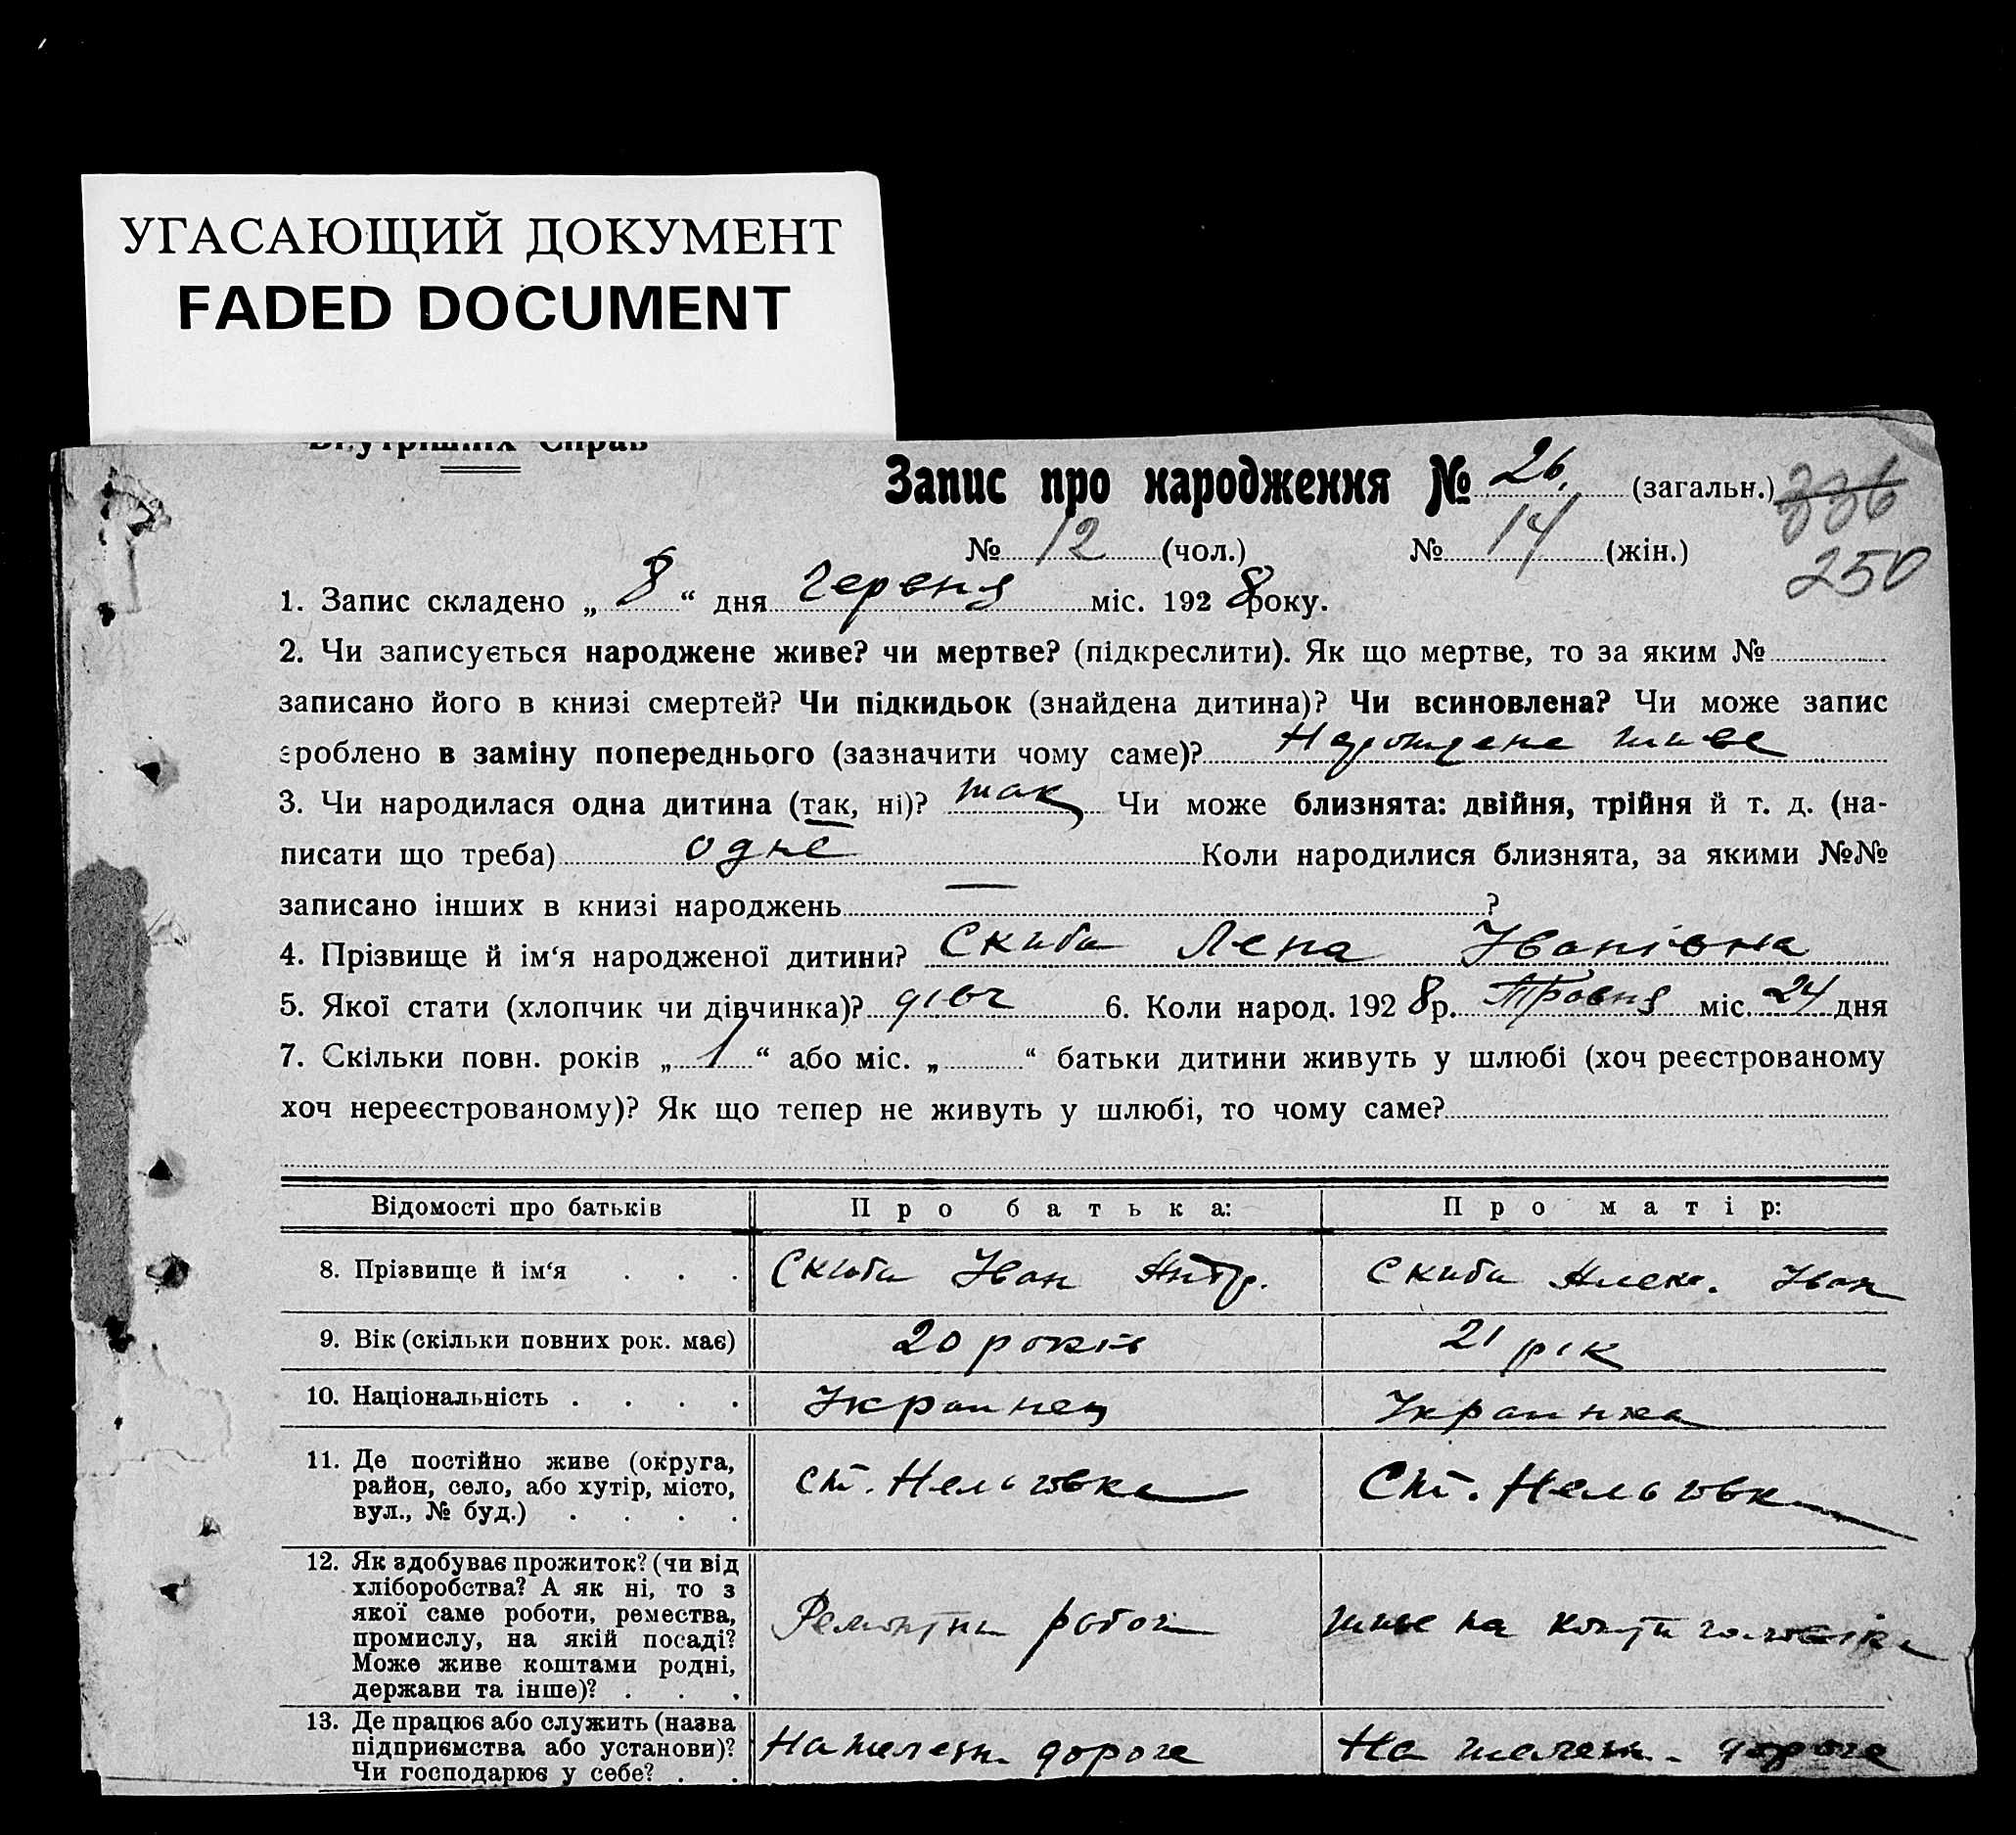 УГАСАЮЩИЙ ДОКУМЕНТ
FADED DOCUMENT
Внутрішніх Справ
Запис про народження № 26. (загальн.) 336
№ 12 (чол.) № 14 (жін.)
250
1. Запис складено „ 8 “ дня Червня міс. 1928 року.
2. Чи записується народжене живе? чи мертве? (підкреслити). Як що мертве, то за яким №
записано його в книзі смертей? Чи підкидьок (знайдена дитина)? Чи всиновлена? Чи може запис
зроблено в заміну попереднього (зазначити чому саме)? Народжене живе
3. Чи народилася одна дитина (так, ні)? так Чи може близнята: двійня, трійня й т. д. (на-
писати що треба) одне Коли народилися близнята, за якими №№
записано інших в книзі народжень — ?
4. Прізвище й ім‘я народженої дитини? Скиба Лена Іванівна
5. Якої стати (хлопчик чи дівчинка)? дівч 6. Коли народ. 1928 р. Травня міс. 24 дня
7. Скільки повн. років „ 1 “ або міс. „ “ батьки дитини живуть у шлюбі (хоч реєстрованому
хоч нереєстрованому)? Як що тепер не живуть у шлюбі, то чому саме?
Відомості про батьків Про батька: Про матір:
8. Прізвище й ім‘я . . . Скиба Іван Скиба Алекс. Іван
9. Вік (скільки повних рок. має) 20 років 21 рік
10. Національність . . . . Українец Українка
11. Де постійно живе (округа,
район, село, або хутір, місто,
вул., № буд.) . . . . ст. Нельговка Ст. Нельговк
12. Як здобуває прожиток? (чи від
хліборобства? А як ні, то з
якої саме роботи, ремества,
промислу, на якій посаді?
Може живе коштами родні,
держави та інше)? . . . Ремонтн робоч живе на кошти чоловіка
13. Де працює або служить (назва
підприємства або установи)?
Чи господарює у себе? . . На железн дороге На железн. дороге